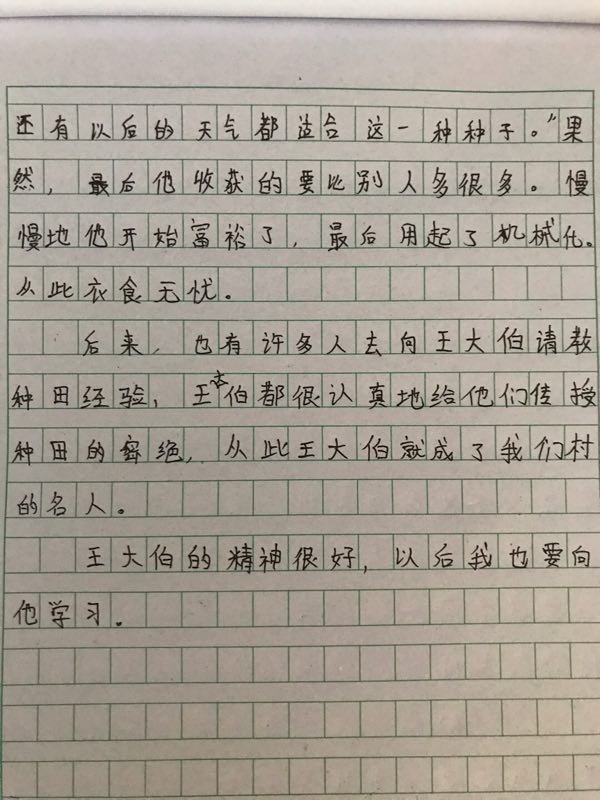 还有以后的天气都适合这一种种子。”果
然，最后他收获的要比别人多很多。慢
慢地他开始富裕了，最后用起了机械化。
从此衣食无忧。
后来，也有许多人去向王大伯请教
种田经验，王大伯都很认真地给他们传授
种田的密绝，从此王大伯就成了我们村
的名人。
王大伯的精神很好，以后我也要向
他学习。